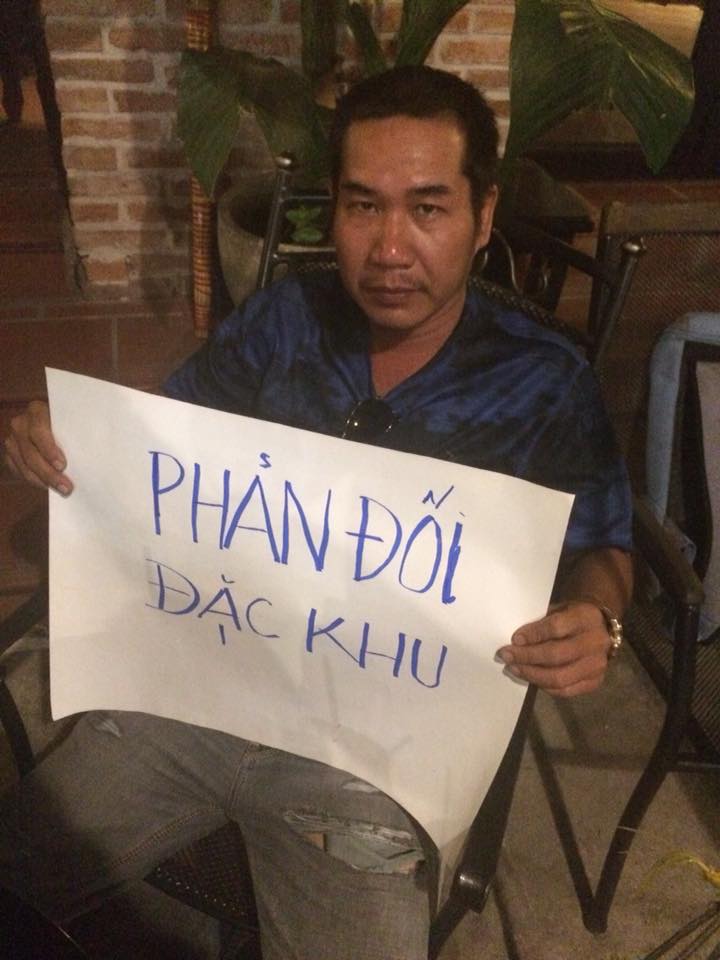 PHẢN ĐỐI
ĐẶC KHU